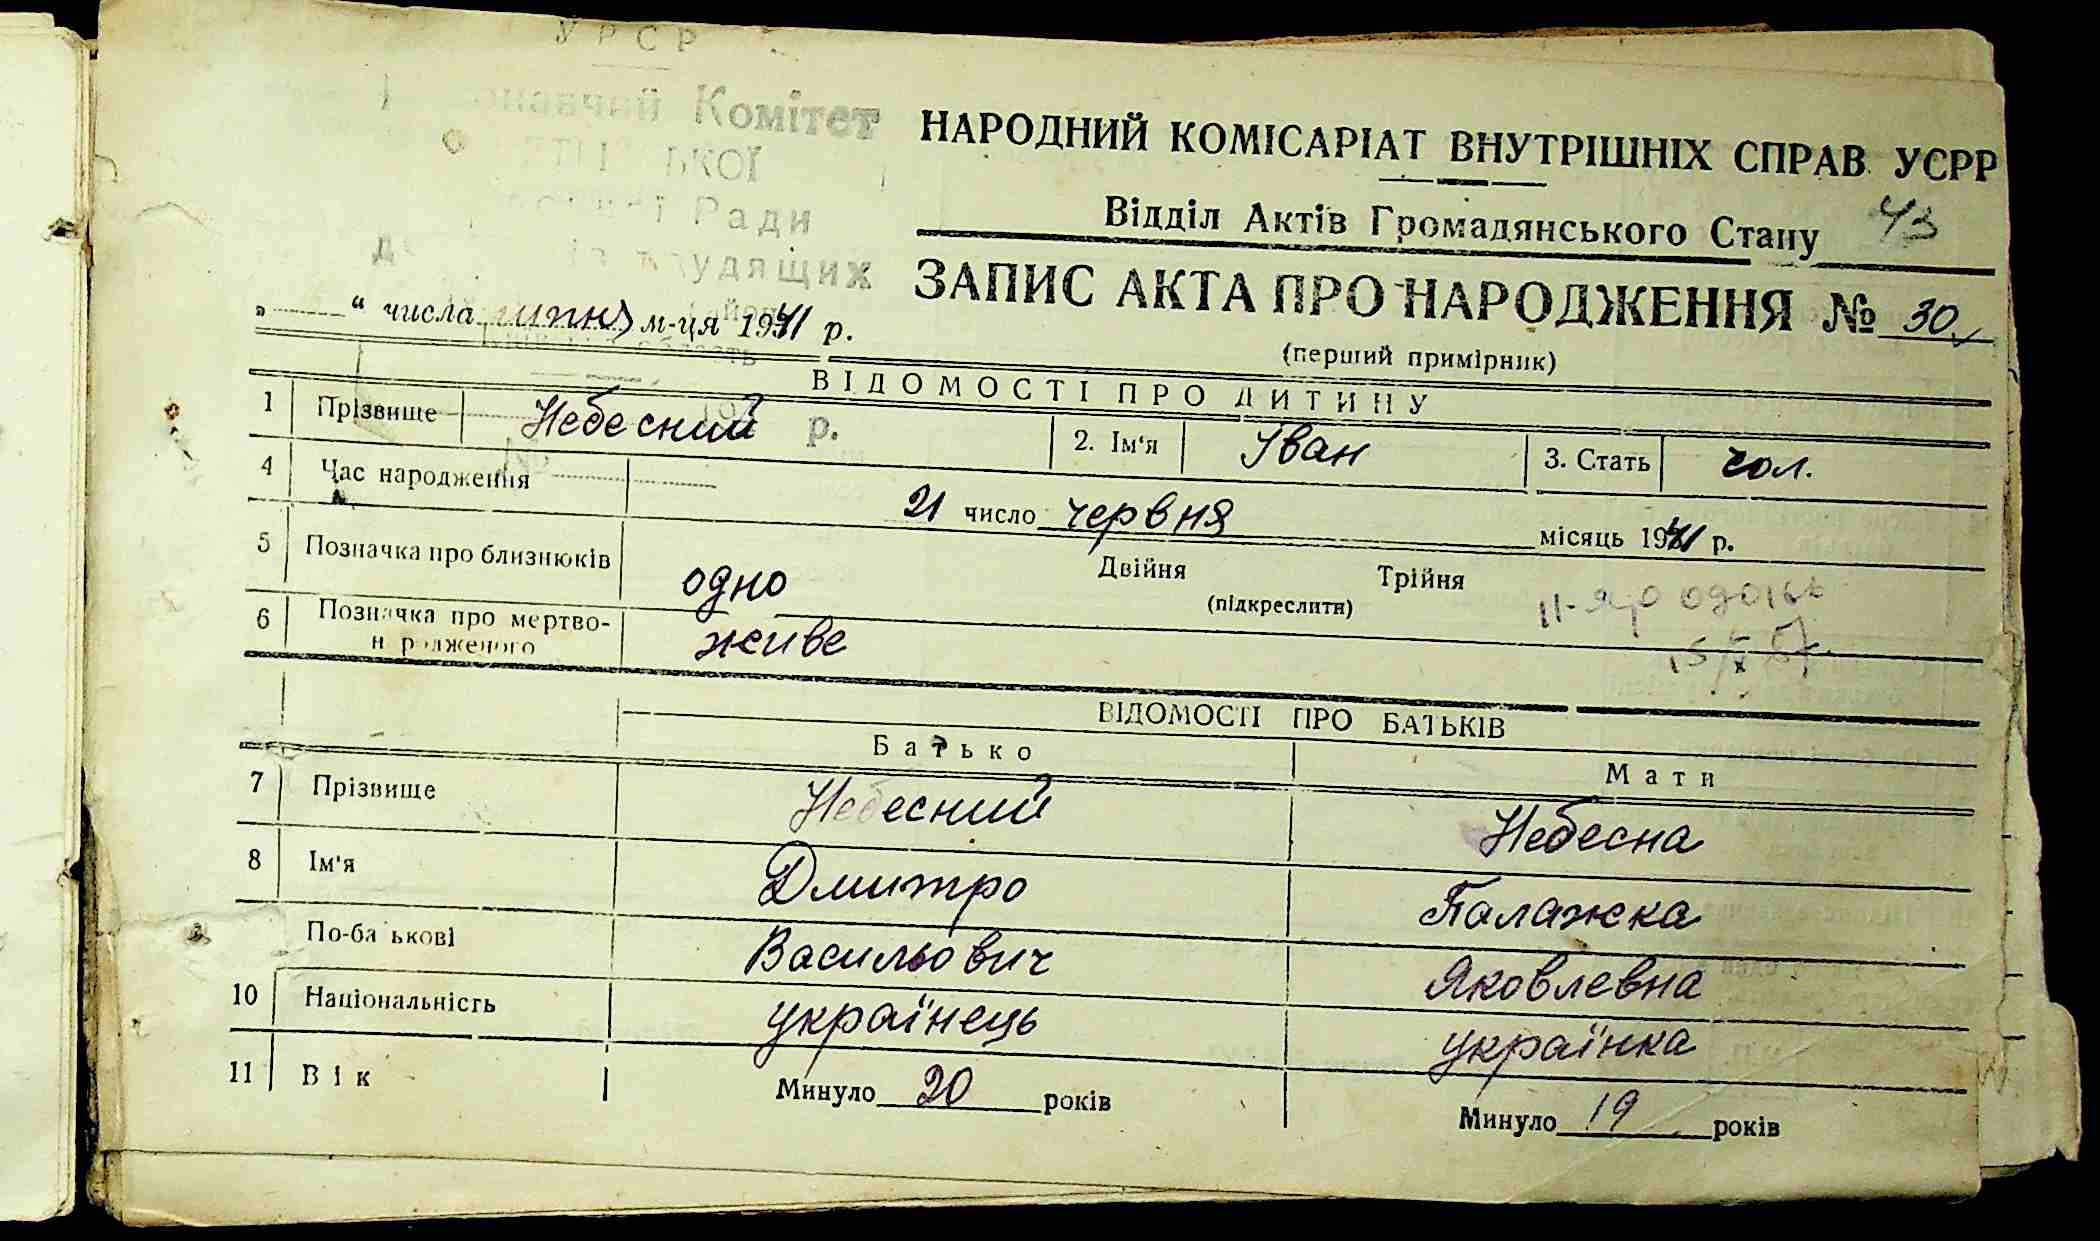 УРСР
Комітет
Ради
трудящих
НАРОДНИЙ КОМІСАРІАТ ВНУТРІШНІХ СПРАВ УСРР
Відділ Актів Громадянського Стану 43
ЗАПИС АКТА ПРО НАРОДЖЕННЯ № 30
„ “ числа липня м-ця 1941 р.
(перший примірник)
ВІДОМОСТІ ПРО ДИТИНУ
1 Прізвище Небесний р. 2. Ім'я Іван 3. Стать чол.
4 Час народження 21 число червня місяць 1941 р.
5 Позначка про близнюків одно Двійня Трійня
(підкреслити)
6 Позначка про мертво-
н родженого живе
ВІДОМОСТІ ПРО БАТЬКІВ
Батько Мати
7 Прізвище Небесний Небесна
8 Ім'я Дмитро Палажка
По-ба ькові Васильович Яковлевна
10 Національність українець українка
11 Вік Минуло 20 років Минуло 19 років